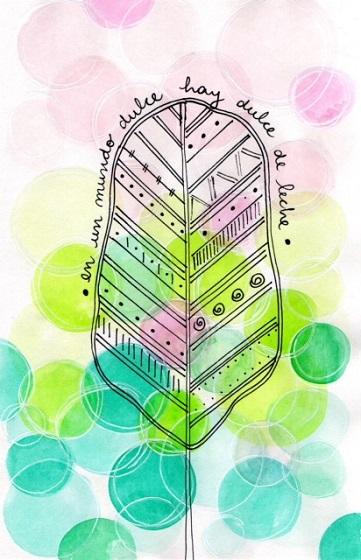 • en un mundo dulce hay dulce de leche •